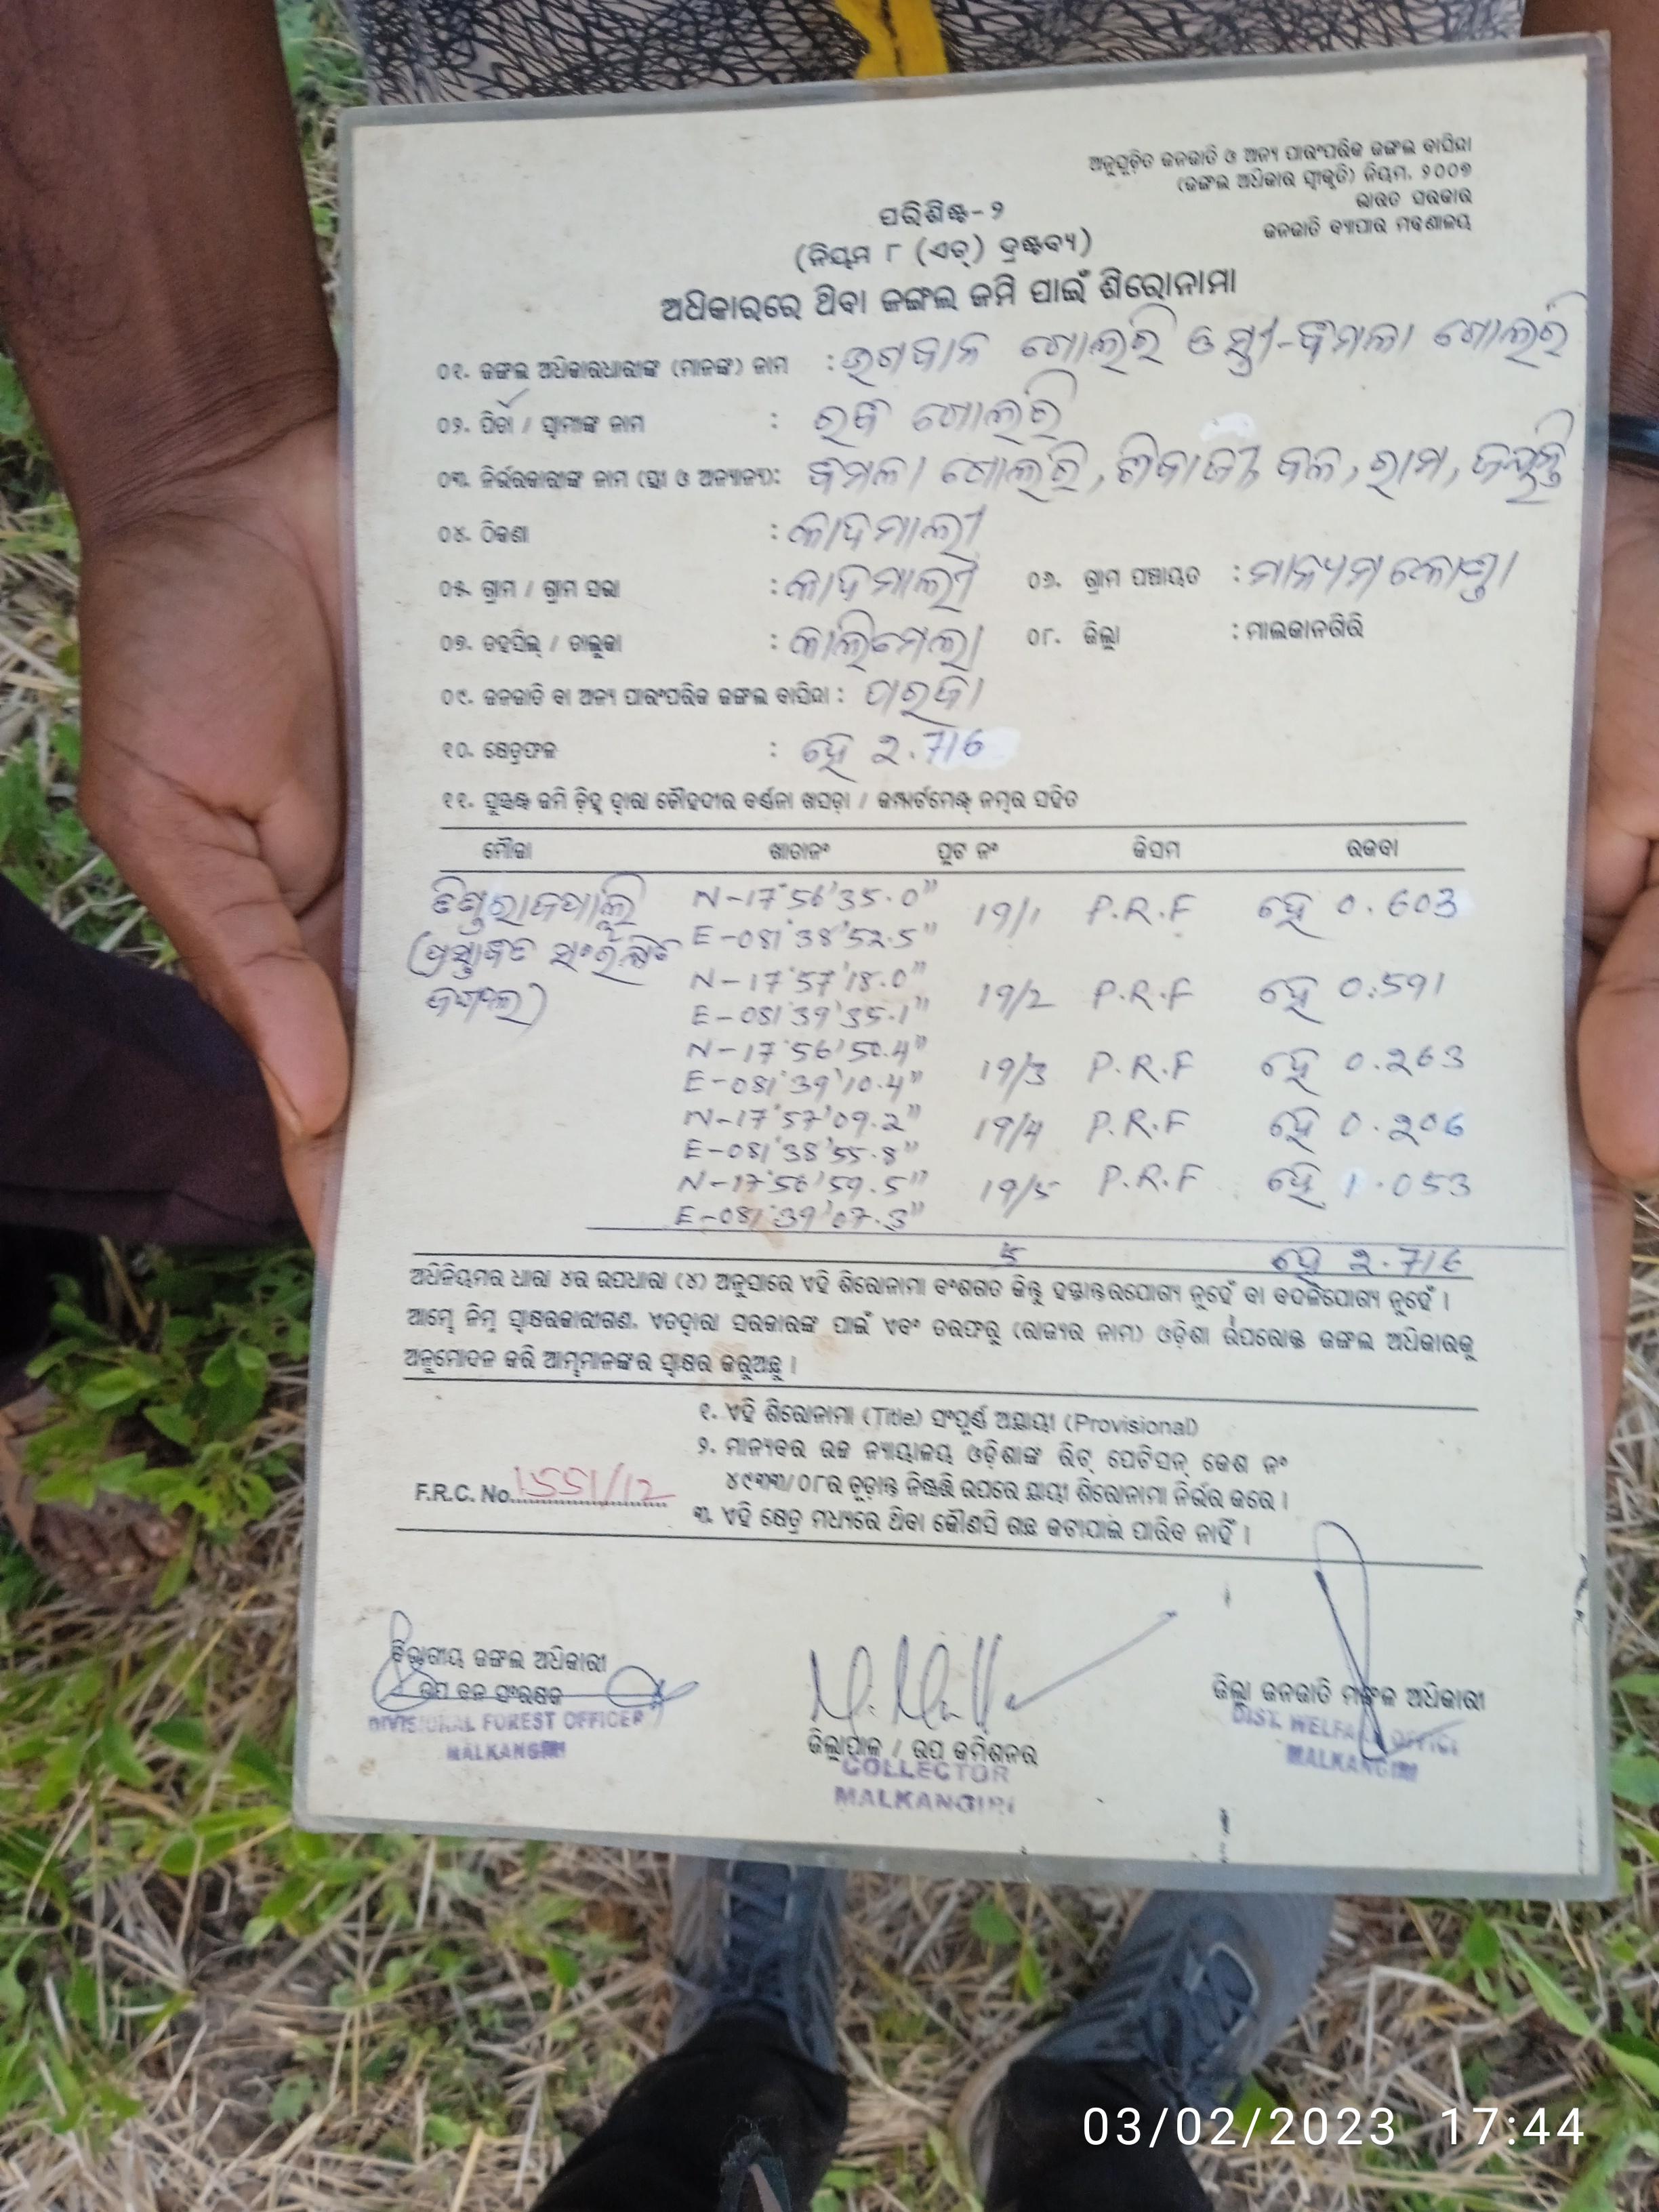 ଅନୁସୂଚିତ ଜନଜାତି ଓ ଅନ୍ୟ ପାରଂପରିକ ଜଙ୍ଗଲ ବାସିନ୍ଦା
(ଜଙ୍ଗଲ ଅଧିକାର ସ୍ୱୀକୃତି) ନିୟମ, ୨୦୦୭
ଭାରତ ସରକାର
ଜନଜାତି ବ୍ୟାପାର ମନ୍ତ୍ରଣାଳୟ
ପରିଶିଷ୍ଟ-୨
(ନିୟମ ୮ (ଏଚ୍) ଦ୍ରଷ୍ଟବ୍ୟ)
ଅଧିକାରରେ ଥିବା ଜଙ୍ଗଲ ଜମି ପାଇଁ ଶିରୋନାମା
୦୧. ଜଙ୍ଗଲ ଅଧିକାରଧାରୀଙ୍କ (ମାନଙ୍କ) ନାମ : ଭଗବାନ ଗୋଲରି ଓ ସ୍ତ୍ରୀ-ବିମଳା ଗୋଲରି
୦୨. ପିତା / ସ୍ୱାମୀଙ୍କ ନାମ : ରବି ଗୋଲରି
୦୩. ନିର୍ଭରକାରୀଙ୍କ ନାମ (ସ୍ତ୍ରୀ ଓ ଅନ୍ୟାନ୍ୟ): ବିମଳା ଗୋଲରି, ଶିବାଜୀ, ବଳ, ରାମ, ଜୟନ୍ତି
୦୪. ଠିକଣା : କାଦମାଲୀ
୦୫. ଗ୍ରାମ / ଗ୍ରାମ ସଭା : କାଦମାଲୀ ୦୬. ଗ୍ରାମ ପଞ୍ଚାୟତ : ମାନ୍ୟମକୋଣ୍ଡା
୦୭. ତହସିଲ୍ / ତାଲୁକା : କାଲିମେଲା ୦୮. ଜିଲ୍ଲା : ମାଲକାନଗିରି
୦୯. ଜନଜାତି ବା ଅନ୍ୟ ପାରଂପରିକ ଜଙ୍ଗଲ ବାସିନ୍ଦା : ପରଜା
୧୦. କ୍ଷେତ୍ରଫଳ : ହେ ୨.716
୧୧. ସୁସ୍ପଷ୍ଟ ଜମି ଚିହ୍ନ ଦ୍ୱାରା ଚୌହଦୀର ବର୍ଣ୍ଣନା ଖସଡ଼ା / କମ୍ପାର୍ଟମେଣ୍ଟ ନମ୍ବର ସହିତ
ମୌଜା ଖାତାନଂ ପ୍ଲଟ ନଂ କିସମ ରକବା
N-17°56'35.0" 19/1 P.R.F ହେ 0.603
E-081°38'52.5"
(ପ୍ରସ୍ତାବିତ ସଂରକ୍ଷିତ
ଜଙ୍ଗଲ)
N-17°57'18.0" 19/2 P.R.F ହେ 0.591
E-081°39'35.1"
N-17°56'50.4" 19/3 P.R.F ହେ 0.263
E-081°39'10.4"
N-17°57'09.2" 19/4 P.R.F ହେ 0.206
E-081°38'55.8"
N-17°56'59.5" 19/5 P.R.F ହେ 1.053
E-081°39'07.3"
5 ହେ 2.716
ଅଧିନିୟମର ଧାରା ୪ର ଉପଧାରା (୪) ଅନୁସାରେ ଏହି ଶିରୋନାମା ବଂଶଗତ କିନ୍ତୁ ହସ୍ତାନ୍ତରଯୋଗ୍ୟ ନୁହେଁ ବା ବଦଳିଯୋଗ୍ୟ ନୁହେଁ ।
ଆମ୍ଭେ ନିମ୍ନ ସ୍ୱାକ୍ଷରକାରୀଗଣ, ଏତଦ୍ୱାରା ସରକାରଙ୍କ ପାଇଁ ଏବଂ ତରଫରୁ (ରାଜ୍ୟର ନାମ) ଓଡ଼ିଶା ଉପରୋକ୍ତ ଜଙ୍ଗଲ ଅଧିକାରକୁ
ଅନୁମୋଦନ କରି ଆମ୍ଭମାନଙ୍କର ସ୍ୱାକ୍ଷର କରୁଅଛୁ ।
୧. ଏହି ଶିରୋନାମା (Title) ସଂପୂର୍ଣ୍ଣ ଅସ୍ଥାୟୀ (Provisional)
୨. ମାନ୍ୟବର ଉଚ୍ଚ ନ୍ୟାୟାଳୟ ଓଡ଼ିଶାଙ୍କ ରିଟ୍ ପେଟିସନ୍ କେଶ ନଂ
୪୯୩୩/୦୮ର ଚୂଡ଼ାନ୍ତ ନିଷ୍ପତ୍ତି ଉପରେ ସ୍ଥାୟୀ ଶିରୋନାମା ନିର୍ଭର କରେ ।
F.R.C. No. 1551/12
୩. ଏହି କ୍ଷେତ୍ର ମଧ୍ୟରେ ଥିବା କୌଣସି ଗଛ କଟାଯାଇ ପାରିବ ନାହିଁ ।
ବିଭାଗୀୟ ଜଙ୍ଗଲ ଅଧିକାରୀ
ଉପ ବନ ସଂରକ୍ଷକ
DIVISIONAL FOREST OFFICER
MALKANGIRI
ଜିଲ୍ଲାପାଳ / ଉପ କମିଶନର
COLLECTOR
MALKANGIRI
ଜିଲ୍ଲା ଜନଜାତି ମଙ୍ଗଳ ଅଧିକାରୀ
DIST. WELFARE OFFICE
MALKANGIRI
03/02/2023 17:44